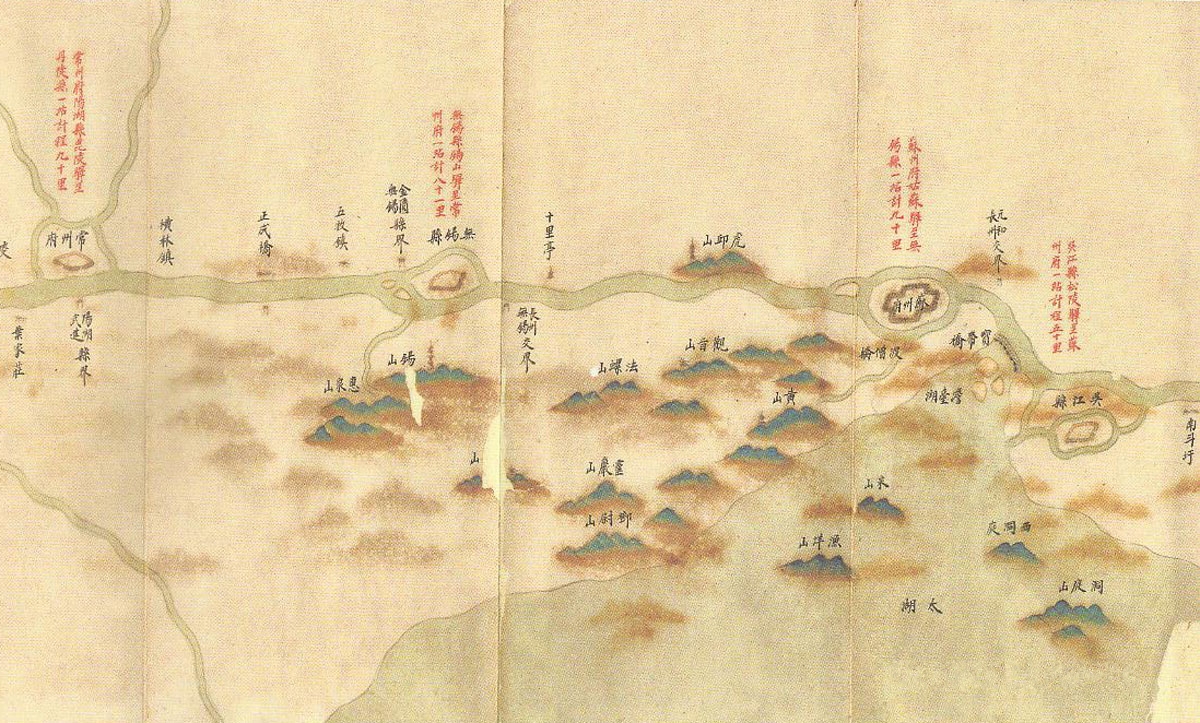 南斗圩
吳江縣松陵驛至蘇
州府一站計程五十里
吳江縣
元和
長州交界
寶帶橋
澹臺湖
蘇州府姑蘇驛至無
錫縣一站計九十里
蘇州府
虎邱山
觀音山
法螺山
黃山
米山
漁洋山
西洞庭
洞庭山
太湖
靈巖山
鄧尉山
山
十里亭
長州
無錫交界
無錫縣錫山驛至常
州府一站計八十一里
無錫縣
金匱
無錫縣界
錫山
惠泉山
五牧鎮
橫林鎮
常州府陽湖縣毘陵驛至
丹陵縣一站計程九十里
常州府
陽湖
武進縣界
葉家莊